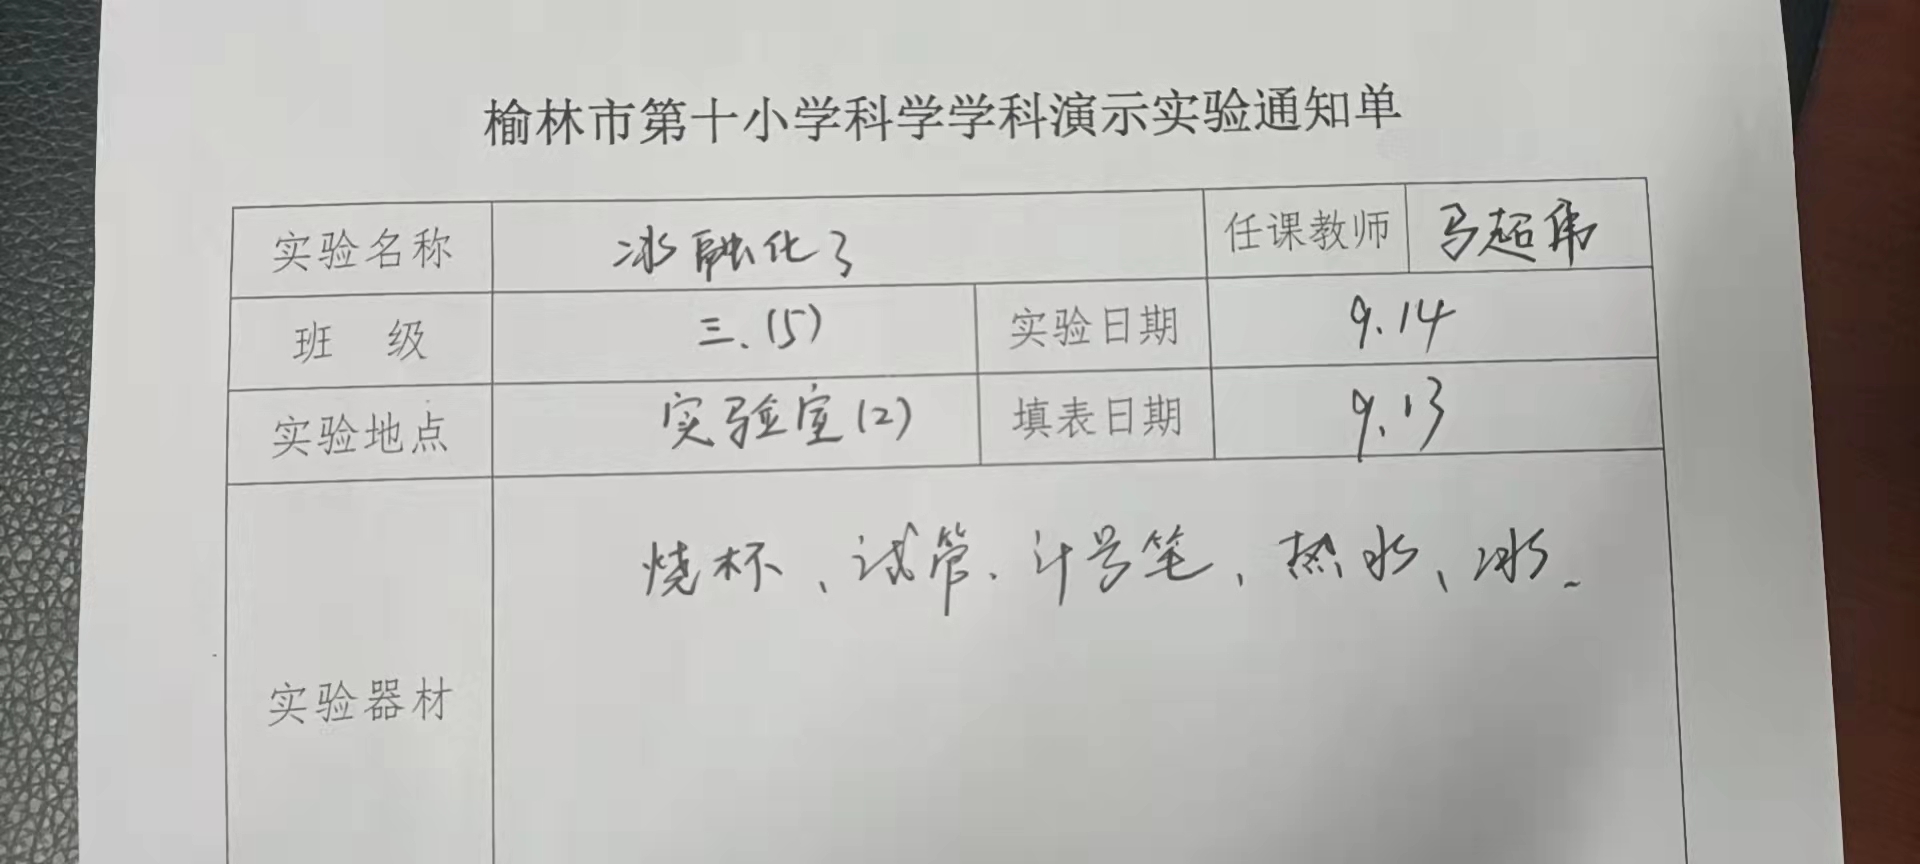 榆林市第十小学科学学科演示实验通知单
实验名称 冰融化了 任课教师 马超伟
班 级 三.(5) 实验日期 9.14
实验地点 实验室(2) 填表日期 9.13
烧杯、试管、计号笔、热水、冰、
实验器材